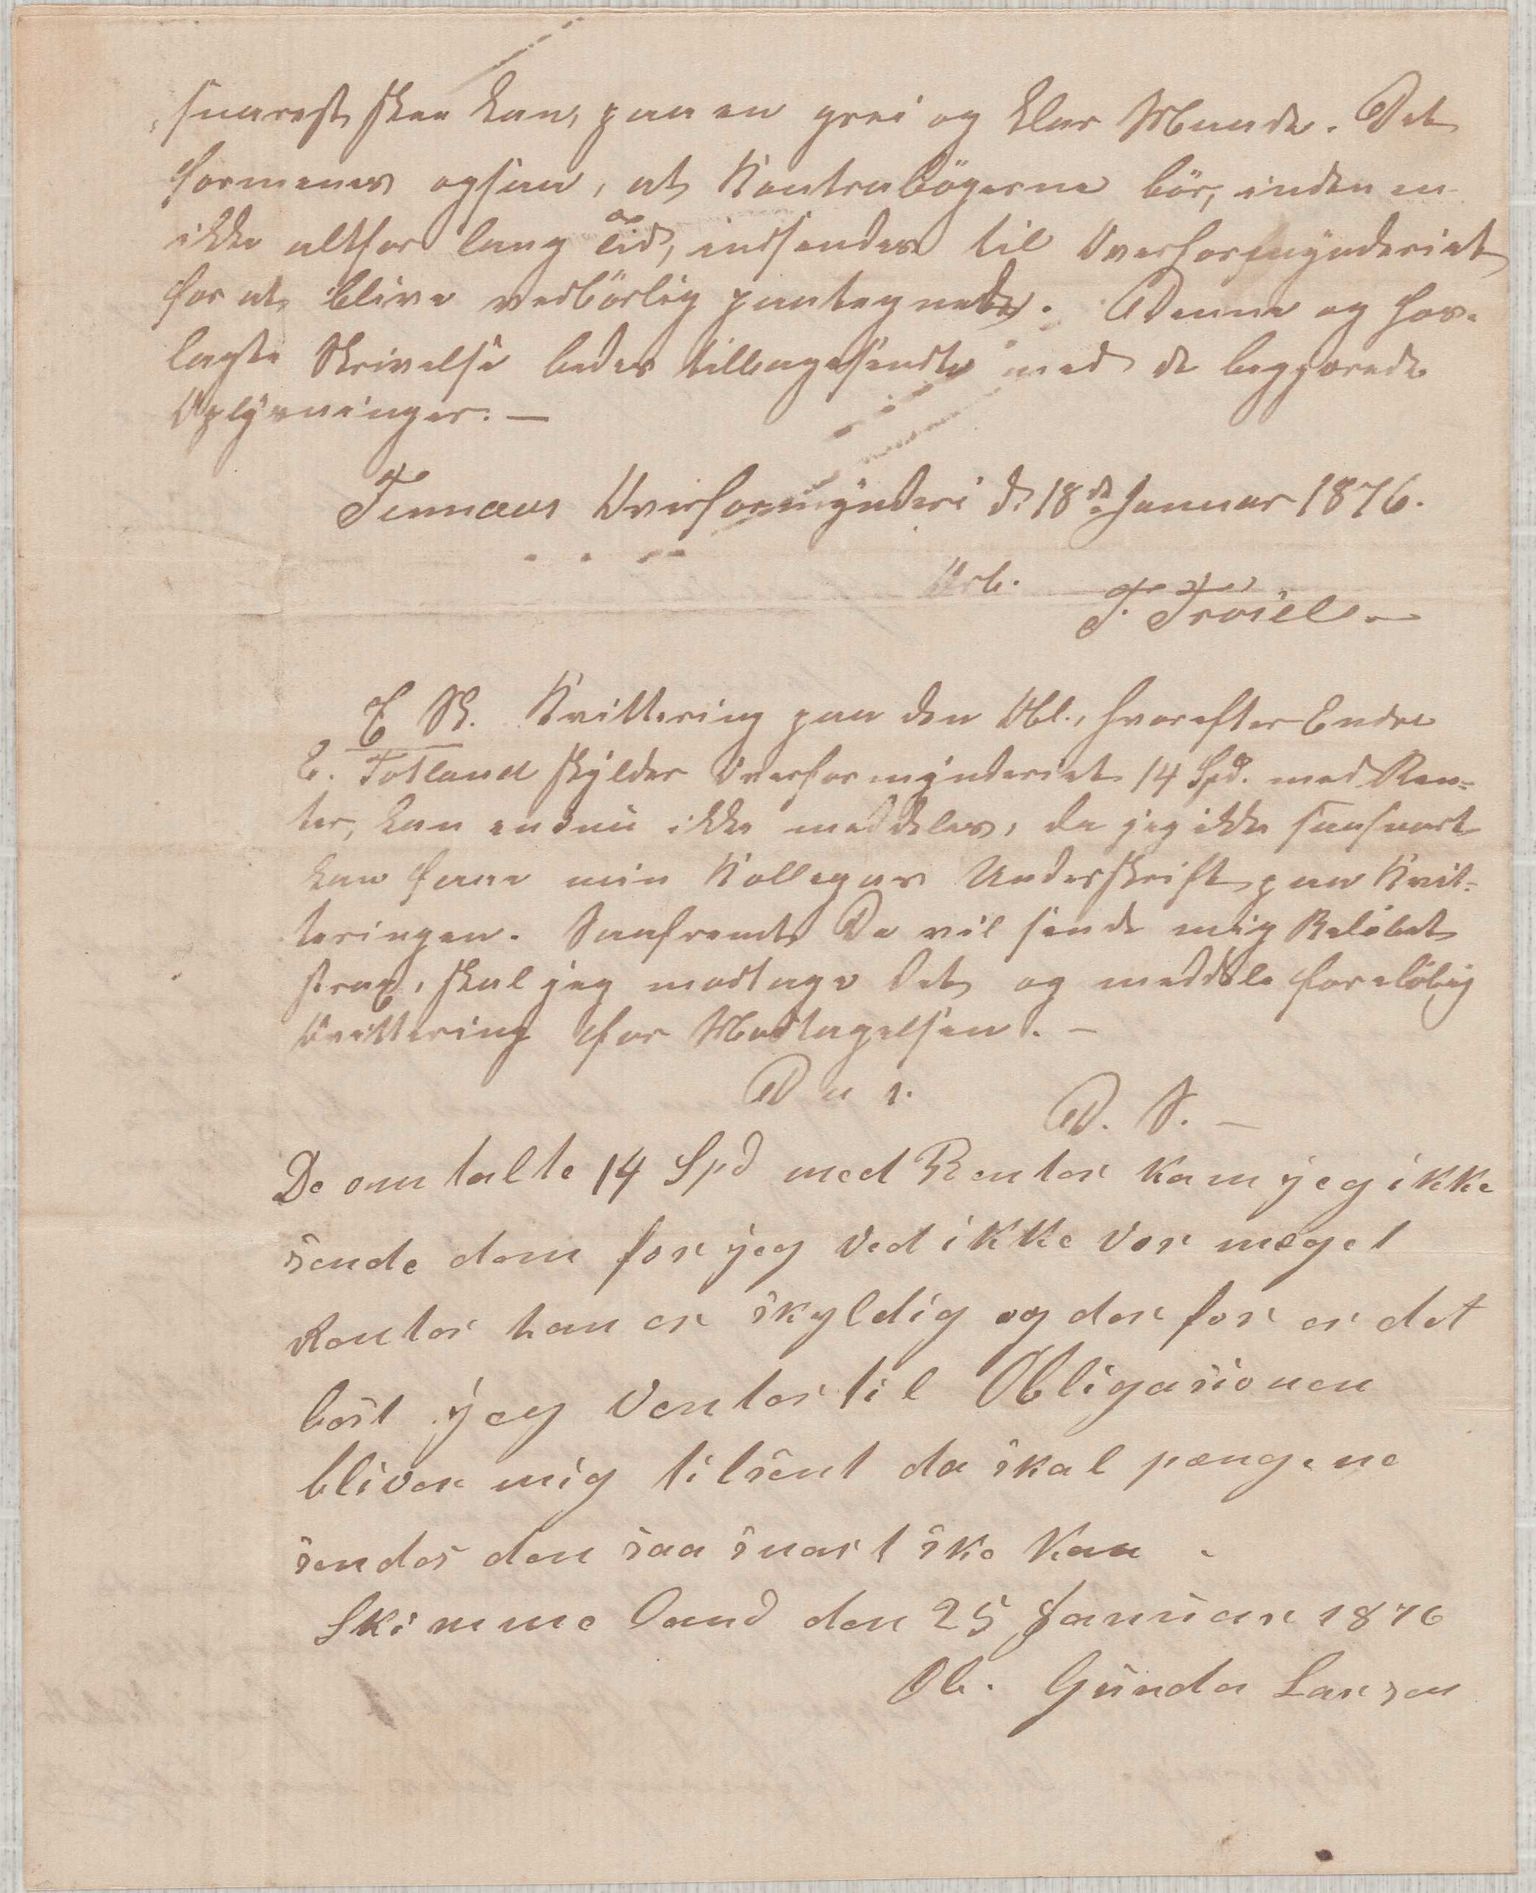 snarest skee kan, paa en grei og klar Maade. Det
formenes ogsaa, at Kontrabögerne bör, inden en
ikke altfor lang Tid, indsendes til Overformynderiet
for at blive vedbörlig paategnede. Denne og fore-
lagte Skrivelse bedes tilbagesendte med de begjærede
Oplysninger. —
Finnaas Overformynderi d. 18de Januar 1876.
Ærb. T. Tröiel. —
E Sk. Kvittering paa den Obl., hvorefter Endre
E. Totland skylder Overformynderiet 14 Spd. med Ren=
ter, kan endnu ikke meddeles, da jeg ikke saasnart
kan faae min Kollegas Underskrift paa Kvit=
teringen. Saafremt De vil sende mig Belöbet
strax, skal jeg modtage det og meddele forelöbig
Kvittering for Modtagelsen. —
D. S. —
De omtalte 14 Spd med Renter kan jeg ikke
sende dem for jeg ved ikke vor møget
Renter han er skyldig og der for er det
best jeg venter til Obligasionen
bliver mig tilsent da skal pængene
sendes den saa snart ske kan .
Skimmeland den 25 Januar 1876
Ob. Gunder Larsen